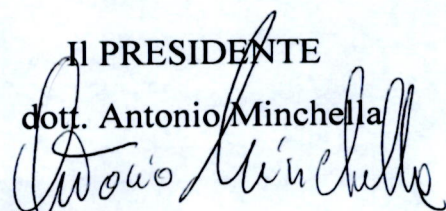 Il PRESIDENTE
dott. Antonio Minchella
Antonio Minchella